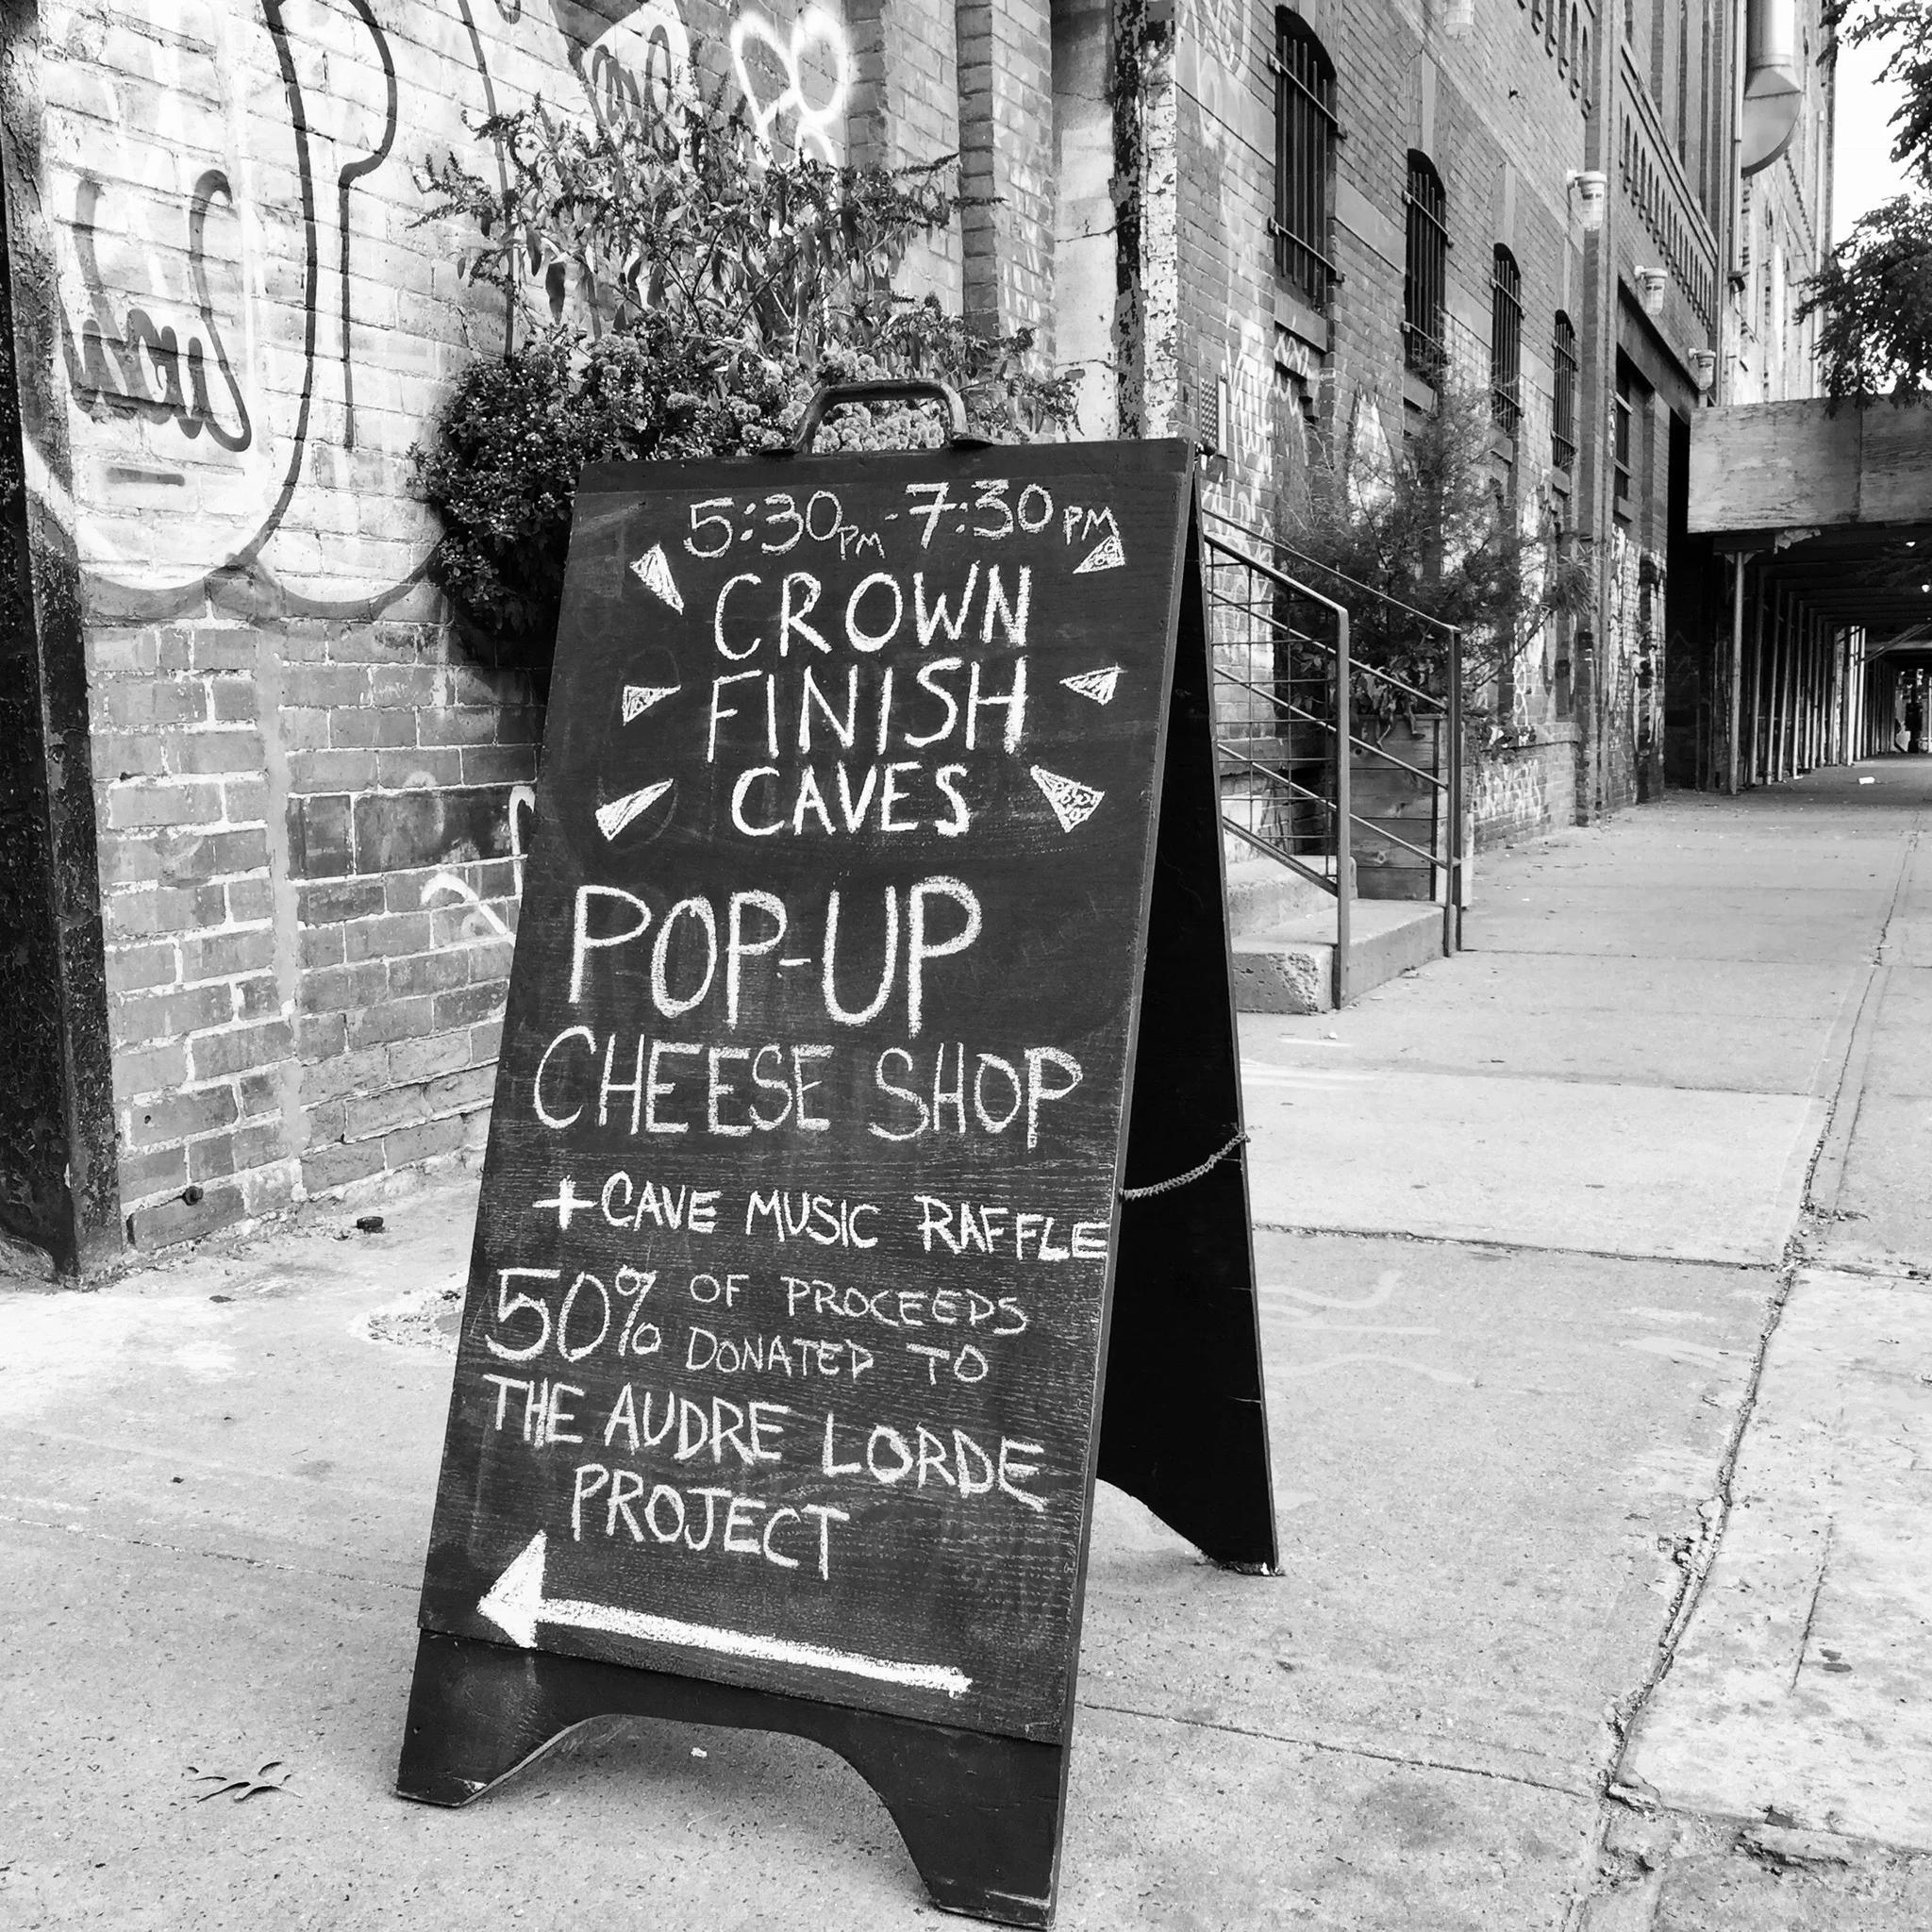 5:30PM-7:30PM
CROWN
FINISH
CAVES
POP-UP
CHEESE SHOP
+CAVE MUSIC RAFFLE
50% OF PROCEEDS
DONATED TO
THE AUDRE LORDE
PROJECT